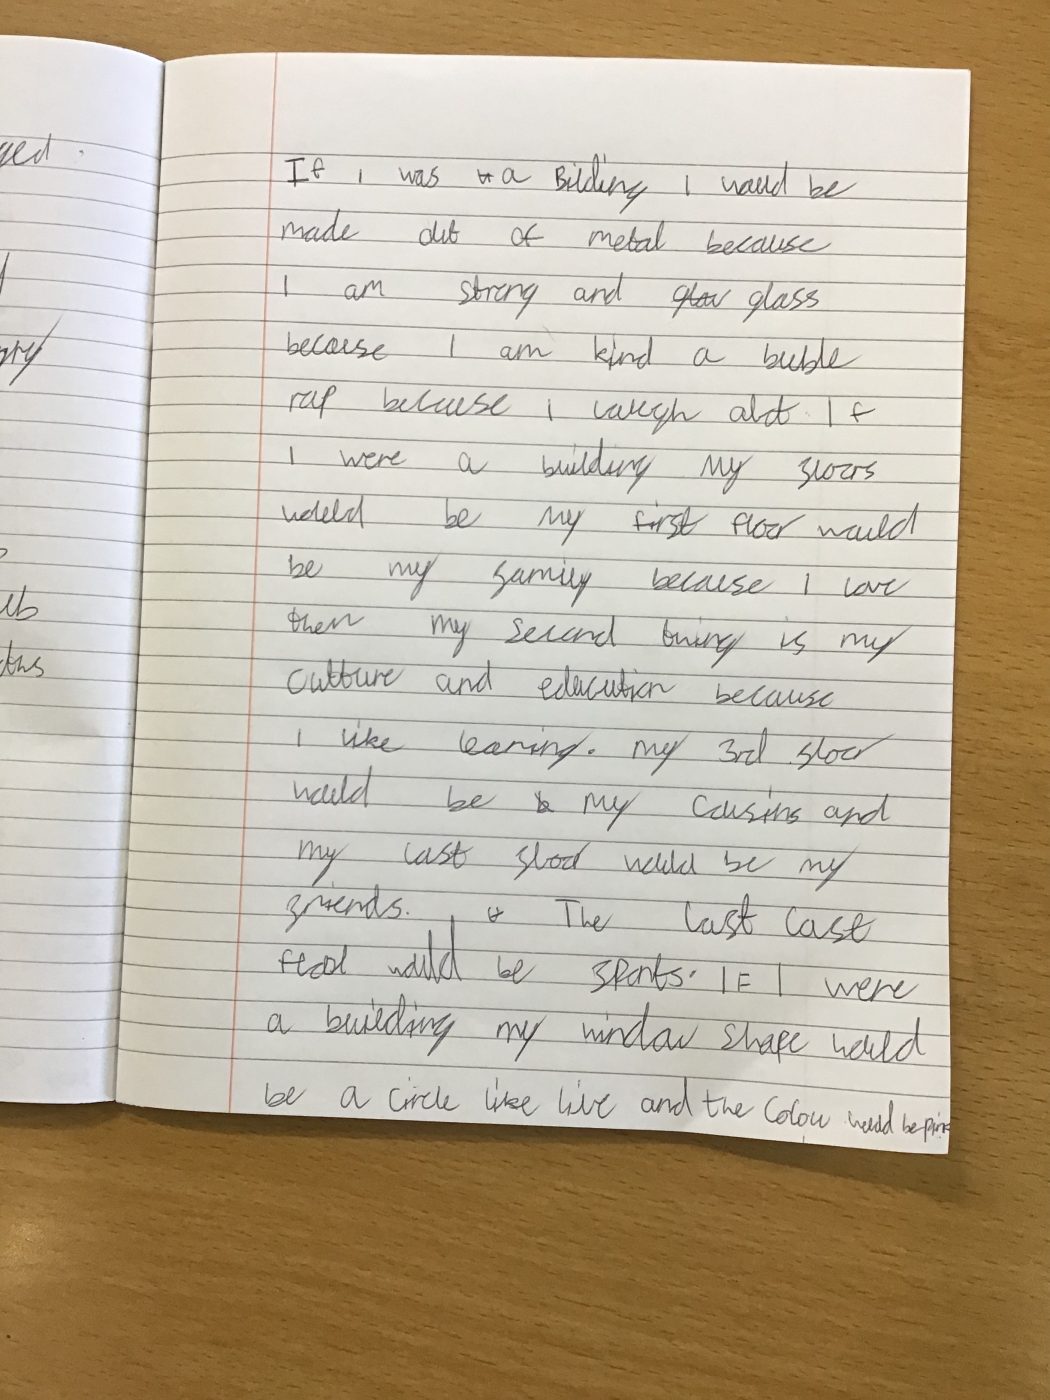 ged.
If i was a Bilding I would be
made out of metal because
I am strong and glow glass
because I am kind a buble
rap because i laugh alot. If
I were a building My floors
would be my first floor would
be my family because I love
them my second thing is my
culture and education because
I like learning. my 3rd floor
would be b my Cousins and
my last floor would be my
friends. The last last
floor would be sports. IF I were
a building my window shape would
be a circle like live and the Colour would be pink